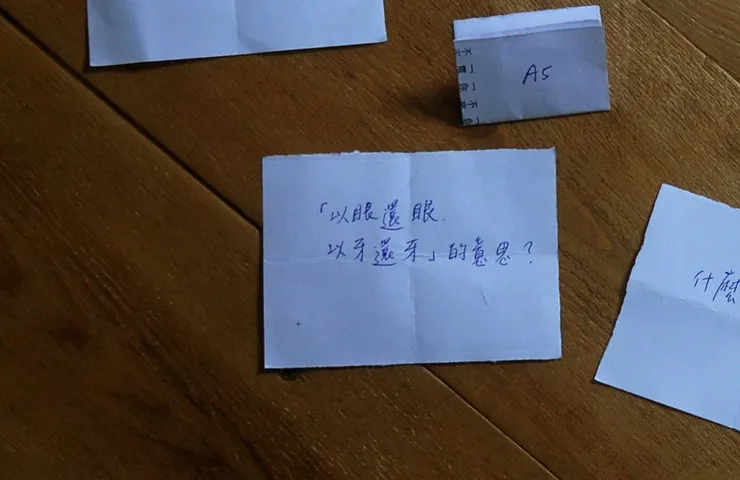 A5
「以眼還眼
以牙還牙」的意思?
什麼